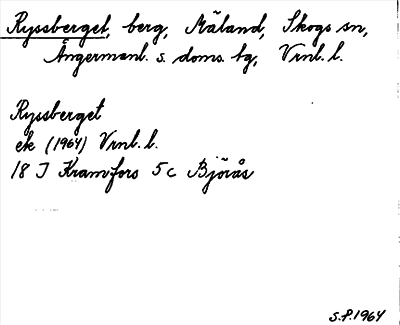 Ryssberget, berg, Mäland, Skogs sn,
Ångermanl. s. doms. tg, Vrnl. l.
Ryssberget
ek (1964) Vrnl. l.
18 J Kramfors 5c Björås
S.P.1964